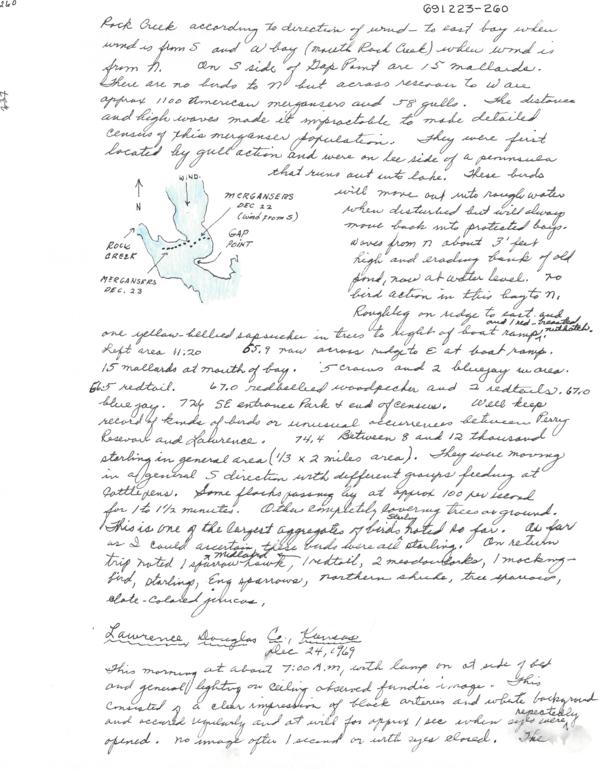 260
691223-260
Rock Creek according to direction of wind - to east bay when
wind is from S and W bay (mouth Rock Creek) when wind is
from N. On S side of Gap Point are 15 mallards.
There are no birds to N but across resevoir to W are
approx 1100 American mergansers and 58 gulls. The distance
and high waves made it impractable to make detailed
census of this merganser population. They were first
located by gull action and were on lee side of a peninsula
that runs out into lake. These birds
will move out into rough water
when disturbed but will always
move back into protected bays.
Waves from N about 3' feet
high and eroding bank of old
pond, now at water level. No
bird action in this bay to N.
Roughleg on ridge to east and
WIND
N
MERGANSERS
DEC 22
(Wind from S)
GAP
POINT
ROCK
CREEK
MERGANSERS
DEC. 23
and 1 red-breasted
nuthatch.
one yellow-bellied sapsucker in trees to right of boat ramp
Left area 11:20 65.9 now across ridge to E at boat ramp.
15 mallards at mouth of bay. 5 crows and 2 bluejay in area.
66.5 redtail. 67.0 redbellied woodpecker and 2 redtails. 67.0
blue jay. 72.4 SE entrance Park & end of census. Well keep
record of kinds of birds or unusual occurrences between Perry
Resevoir and Lawrence. 74.4 Between 8 and 12 thousand
starling in general area (1/3 x 2 miles area). They were moving
in a general S direction with different groups feeding at
cattle pens. Some flocks passing by at approx 100 per second
for 1 to 1½ minutes. Others completely covering trees or ground.
Starling
This is one of the largest aggregates of birds noted so far. As far
as I could ascertain these birds were all starling. On return
midland
trip noted 1 sparrow hawk, 1 redtail, 2 meadowlarks, 1 mocking-
bird, starling, Eng sparrows, northern shrike, tree sparrows,
slate-colored juncos,
Lawrence, Douglas Co., Kansas
Dec 24, 1969
This morning at about 7:00 A.M, with lamp on at side of bed
and general lighting on ceiling observed fundic image. This
consisted of a clear impression of black arteries and white background
repectedly
and occured regularly and at will for approx 1 sec when eyes were
opened. No image after 1 second or with eyes closed. The